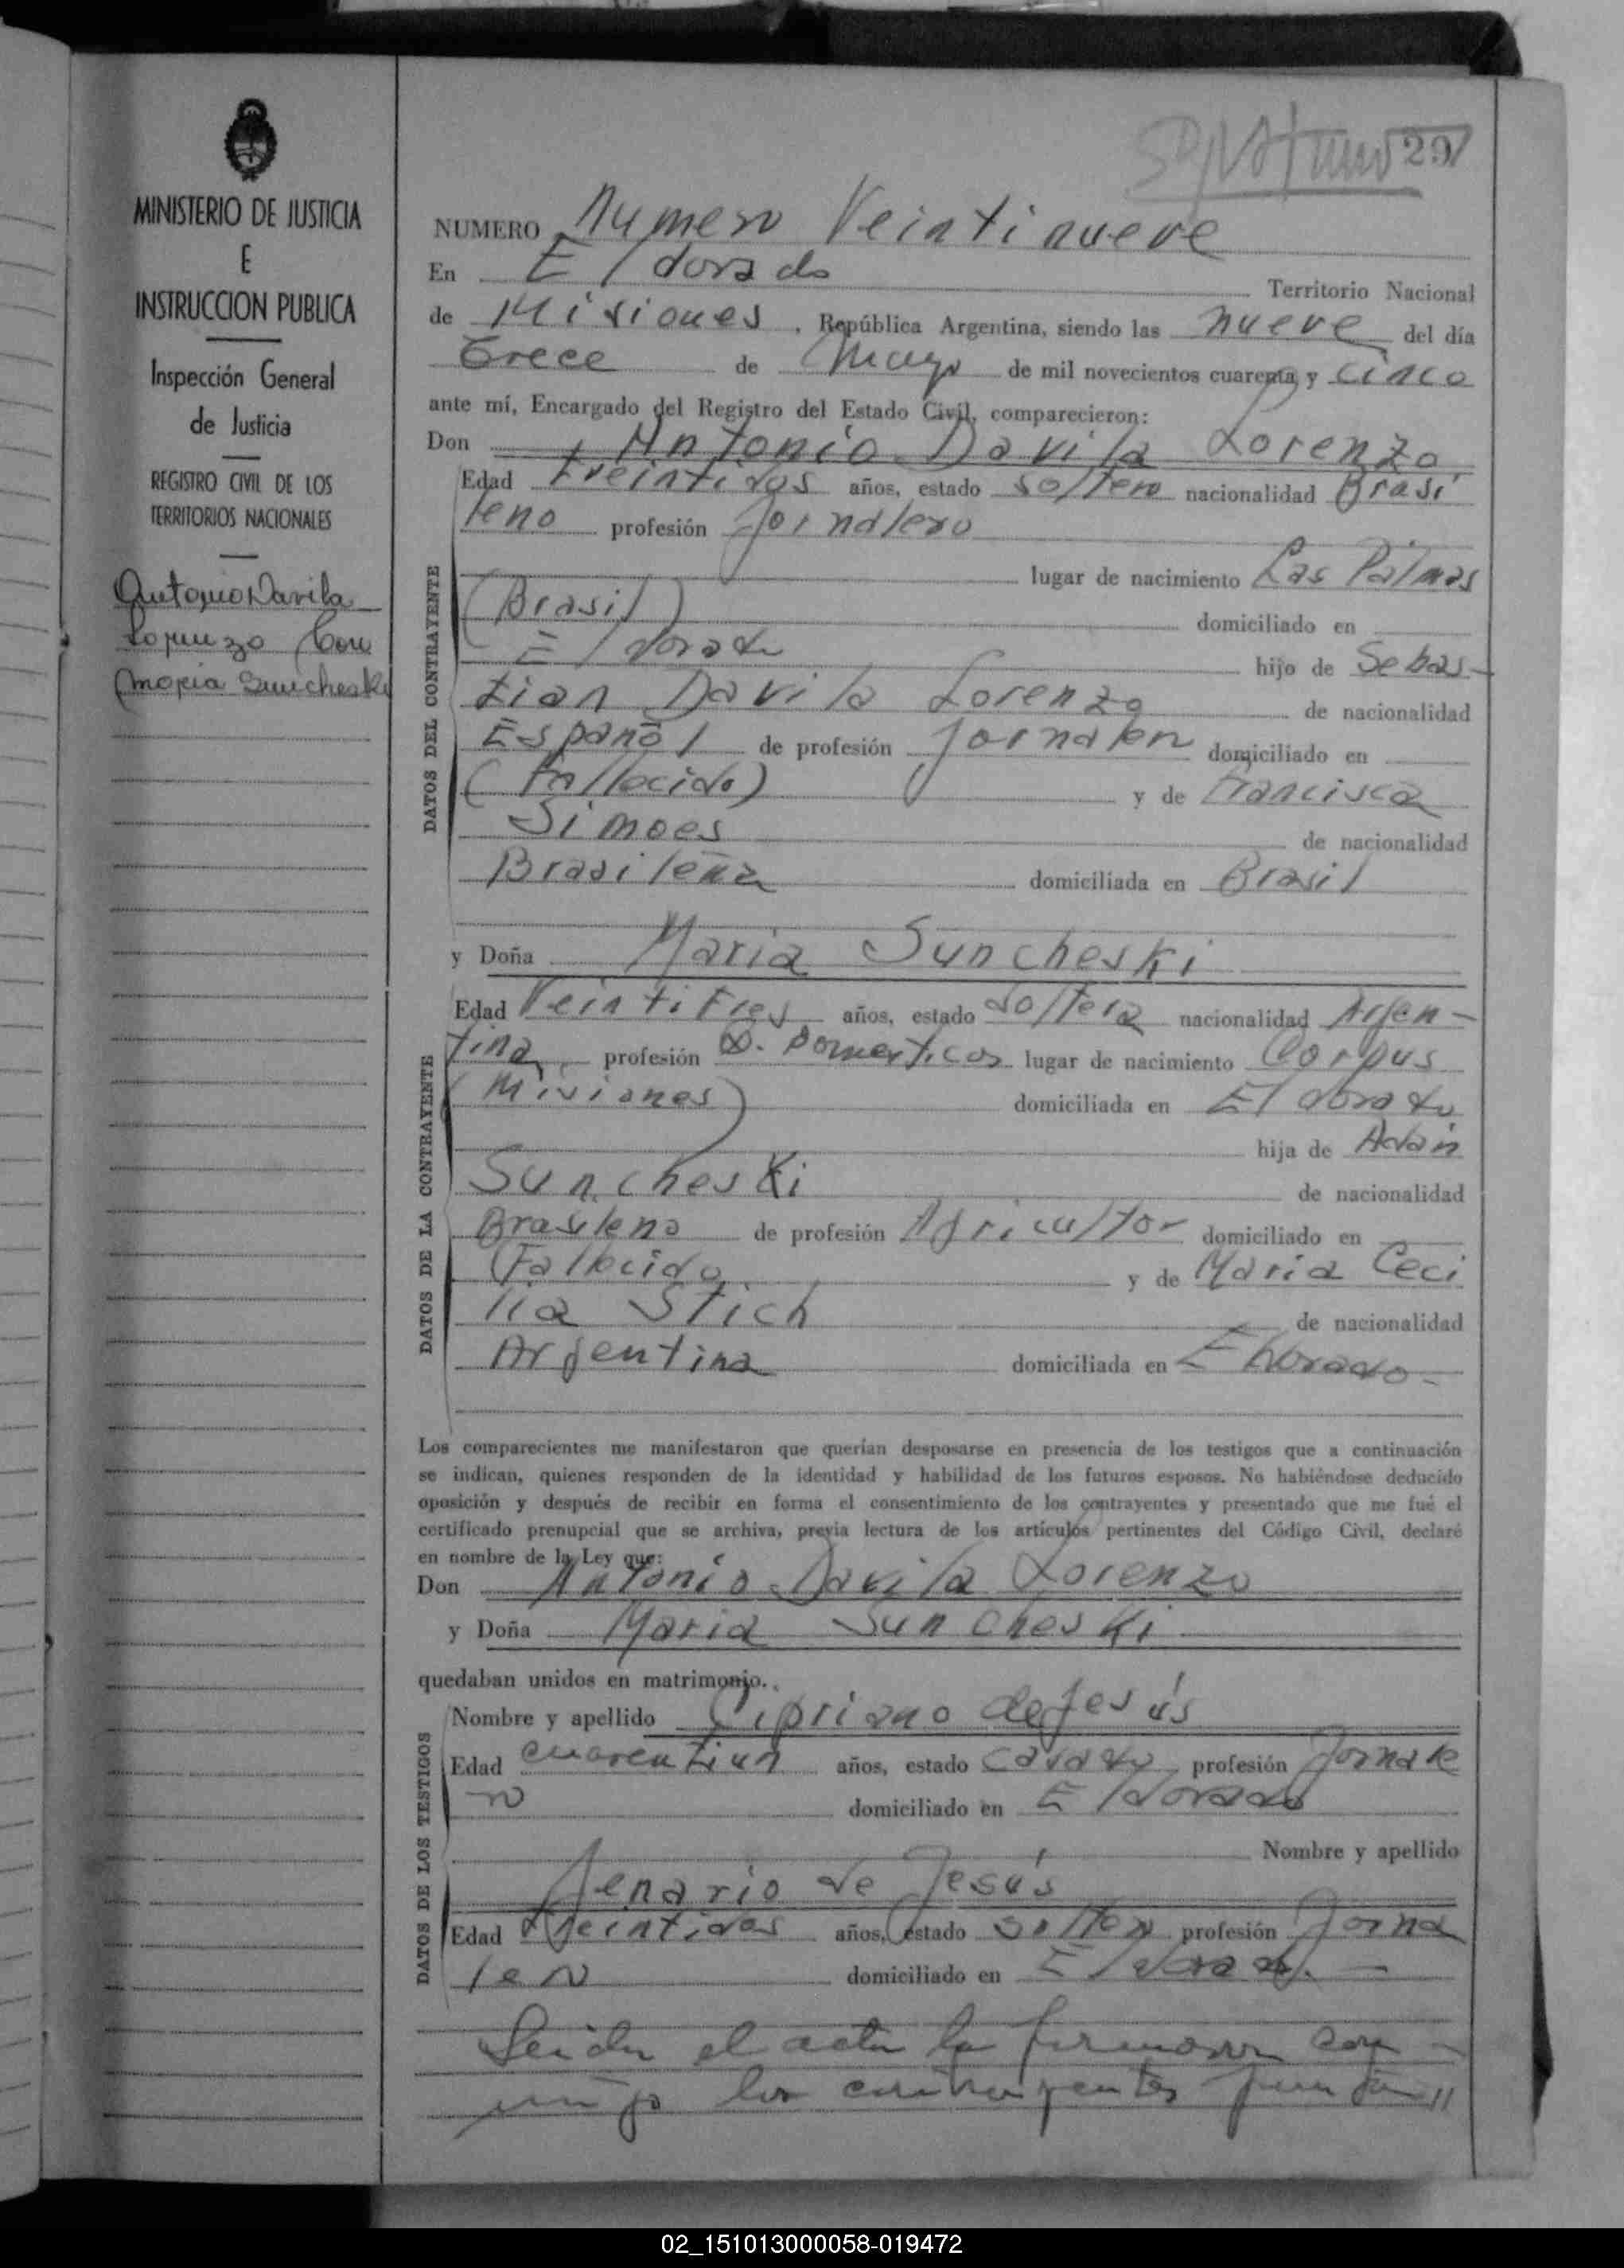 MINISTERIO DE JUSTICIA
E
INSTRUCCION PUBLICA
Inspección General
de Justicia
REGISTRO CIVIL DE LOS
TERRITORIOS NACIONALES
Antonio Davila
Lorenzo Con
Maria Suncheski
29
NUMERO Numero Veintinueve
En Eldorado Territorio Nacional
de Misiones, República Argentina, siendo las nueve del día
trece de Mayo de mil novecientos cuarenta y cinco
ante mí, Encargado del Registro del Estado Civil, comparecieron:
Don Antonio Davila Lorenzo
DATOS DEL CONTRAYENTE
Edad treintidos años, estado soltero nacionalidad Brasi
leno profesión Jornalero
lugar de nacimiento Las Palmas
(Brasil) domiciliado en
Eldorado hijo de Sebas-
tian Davila Lorenzo de nacionalidad
Español de profesión Jornalero domiciliado en
(Fallecido) y de Francisca
Simoes de nacionalidad
Brasileña domiciliada en Brasil
y Doña Maria Suncheski
DATOS DE LA CONTRAYENTE
Edad Veintitres años, estado Soltera nacionalidad Argen-
tina profesión Q. Domesticos lugar de nacimiento Corpus
(Misiones) domiciliada en Eldorado
hija de Adan
Suncheski de nacionalidad
Brasileno de profesión Agricultor domiciliado en
(Fallecido y de Maria Ceci
lia Stich de nacionalidad
Argentina domiciliada en Eldorado-
Los comparecientes me manifestaron que querían desposarse en presencia de los testigos que a continuación
se indican, quienes responden de la identidad y habilidad de los futuros esposos. No habiéndose deducido
oposición y después de recibir en forma el consentimiento de los contrayentes y presentado que me fué el
certificado prenupcial que se archiva, previa lectura de los artículos pertinentes del Código Civil, declaré
en nombre de la Ley que:
Don Antonio Davila Lorenzo
y Doña Maria Suncheski
quedaban unidos en matrimonio.
DATOS DE LOS TESTIGOS
Nombre y apellido Cipriano de Jesús
Edad cuarentiun años, estado casado profesión Jornale
ro domiciliado en Eldorado
Nombre y apellido
Jenario de Jesús
Edad treintidos años, estado soltero profesión Jorna
lero domiciliado en Eldorado. -
Leida el acta la firmaron con-
migo los contrayentes junta//
02_151013000058-019472